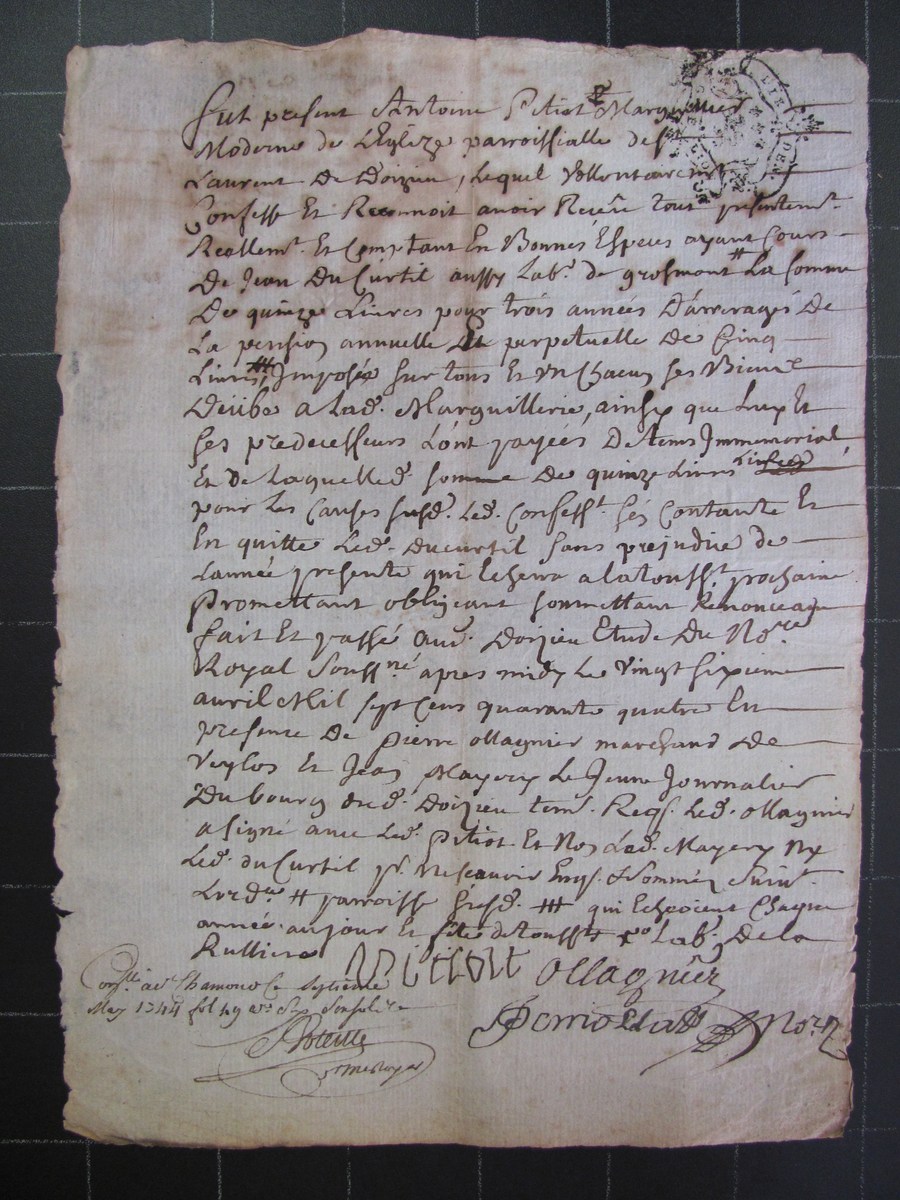 fut present Antoine Pitiot Marguillier
Moderne de L'Eglize parroissialle de St
Laurent De Doizieu, Lequel Vollontairemt
Confesse Et Reconnoit avoir Receu tout presentemt.
Reallemt. Et Comptant En Bonnes Especes ayant Cours
De Jean Du Curtil aussy Labr. de grosmont # La somme
De quinze Livres pour trois années D'arrerages De
La pension annuelle Et perpetuelle de Cinq
Livres ## Imposée sur tous Et Un Chacun ses Biens
Deübe a Lad. Marguillerie, ainsy que Luy Et
ses predecesseurs L'ont payées, De tems Immemorial
Et De Laquelled. somme De quinze Livres
pour Les Causes susd. Led. Confesst. s'és Contanté Et
En quitte Led. Ducurtil sans prejudice de
L'année presente qui Echerra a la tousst. prochaine
Promettant obligeant soumettant Renonceant
fait Et passé aud. Doizieu Etude Du Nore.
Royal Soussné apres midy Le Vingt sixieme
avril Mil sept Cens quarante quatre En
presence De Pierre Ollagnier marchand de
Et Jean Mayery Le Jeune Journalier
Du bourg dud. Doizieu tem. Reqs. Led. Ollagnier
a signé avec Led. Pitiot Et Non Led. Mayery Ny
Led. du Curtil pr. ne scavoir Enqs.
# parroisse susd. ## qui Echeoient Chaque
année au jour Et fête de Tousst Labr. De la
Rulliere Pitiot Ollagnier
Conllé a St Chamond Le septieme
May 1744 fol 49
Nore.